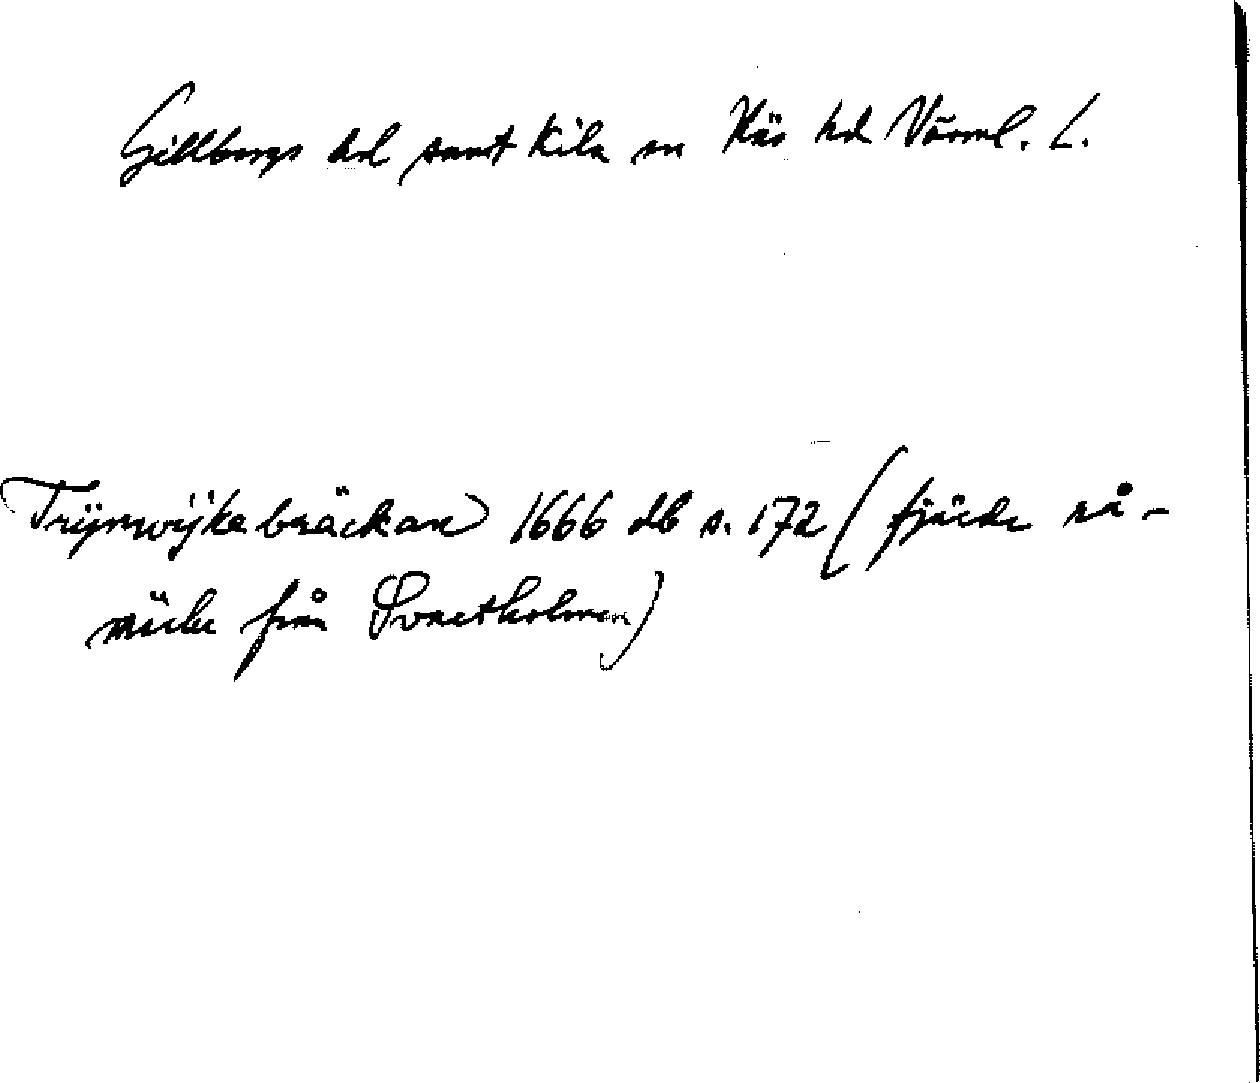 Gillbergs hd samt Kila sn Näs hd Värml. l.
Trijnwijkebräckan 1666 db s. 172 (fjärde rå-
märke från Svartholmen)